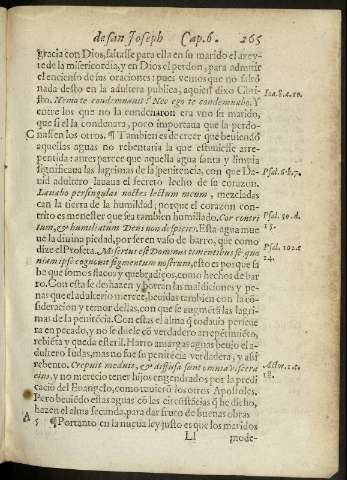 de san Joseph Cap.6. 265
gracia con Dios, faltasse para ella en su marido el azey-
te de la misericordia, y en Dios el perdon, para admitir
el encienso de sus oraciones: pues vemos que no faltò
nada desto en la adultera publica, aquien dixo Chri-
sto. Nemo te condemnauit? Nec ego te condemnabo. Y Ioa.8.c.10.
entre los que no la condenaron era vno su marido,
que si el la condenara, poco importaua que la perdo-
C nassen los otros. ¶ Tambien es de creer que beuiendo
aquellas aguas no rebentaria la que estuuiesse arre-
pentida: antes parece que aquella agua santa y limpia
significaua las lagrimas de la penitencia, con que Da- Psal.6.b.7.
uid adultero lauaua el secreto lecho de su corazon.
Lauabo per singulas noctes lectum meum, mezcladas
con la tierra de la humildad, porque el corazon con-
trito es menester que sea tambien humillado. Cor contri Psal.50.d.
tum, & humiliatum Deus non despicies. Esta agua mue 19.
ue la diuina piedad, por ser en vaso de barro, que como
dize el Profeta. Misertus est Dominus timentibus se: quo Psal.102.c
niam ipse cognouit figmentum nostrum, esto es porque sa 14.
be que somos flacos y quebradizos, como hechos de bar
ro. Con esta se deshazen y borran las maldiciones y pe-
nas que el adulterio merece, beuidas tambien con la cō-
sideracion y temor dellas, con que se augmētā las lagri-
mas de la penitēcia. Con estas el alma q̄ todauia perseue
ra en pecado, y no se duele cō verdadero arrepētimiēto,
rebiēta y queda esteril. Harto amargas aguas beuio el a-
dultero Iudas, mas no fue su penitēcia verdadera, y assi
rebento. Crepuit medius, & diffusa sunt omnia viscera Actor.1.c.
eius, y no merecio tener hijos engendrados por la predi 18.
cació del Euangelo, como tuuierō los otros Apostoles.
Pero beuiēdo ellas aguas cō las circūstācias q̄ he dicho,
hazen el alma fecunda, para dar fruto de buenas obras
A 5 ¶ Portanto en la nueua ley justo es que los maridos
Ll mode-